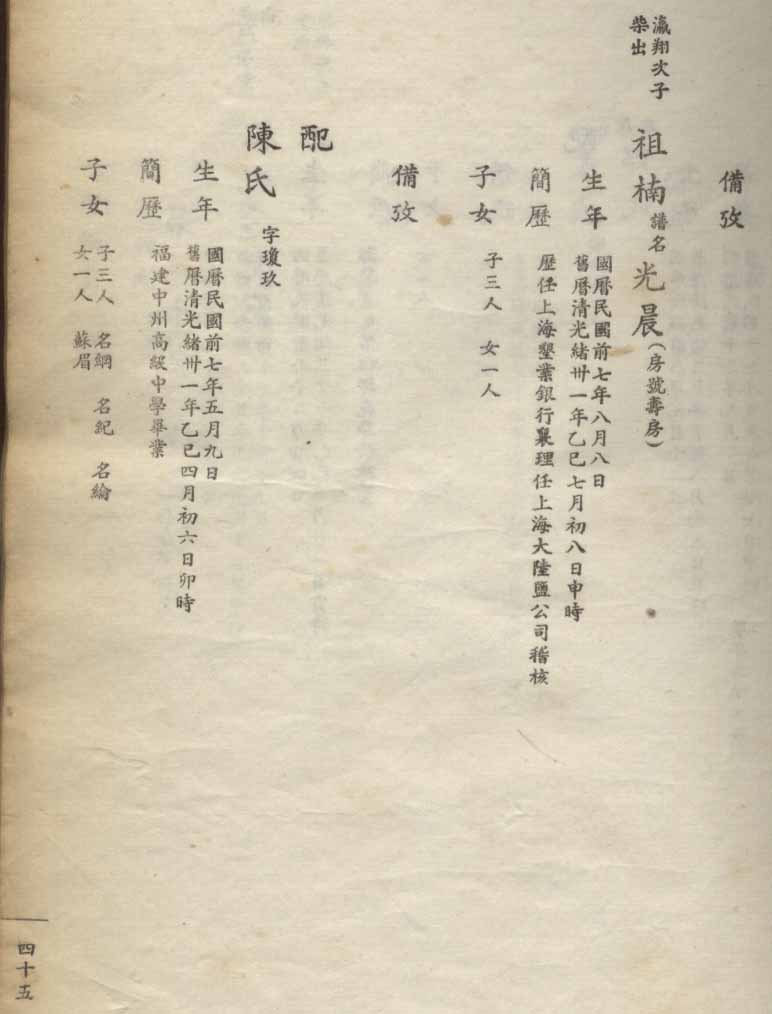 備攷
瀛翔次子
柴出
祖楠 譜名 光晨（房號壽房）
生年
國曆民國前七年八月八日
舊曆清光緒卅一年乙巳七月初八日申時
簡歷
歷任上海墾業銀行襄理任上海大陸鹽公司稽核
子女
子三人 女一人
備攷
配
陳氏 字瓊玖
生年
國曆民國前七年五月九日
舊曆清光緒卅一年乙巳四月初六日卯時
簡歷
福建中州高級中學畢業
子女
子三人 名綱 名紀 名綸
女一人 蘇眉
四十五